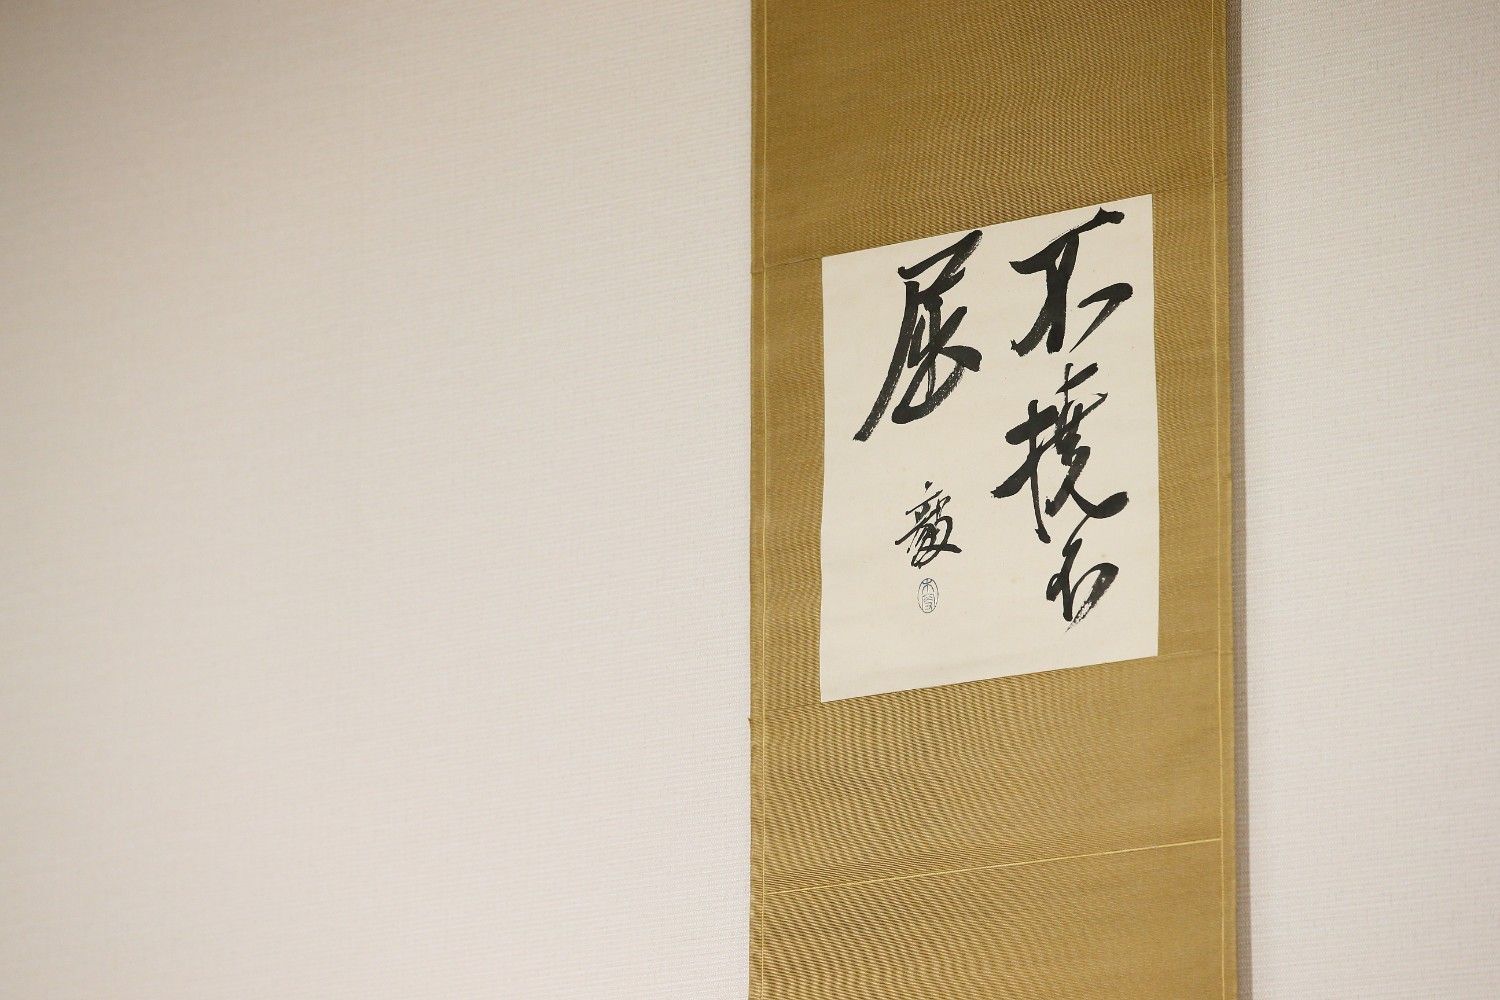 不撓不
屈
毅